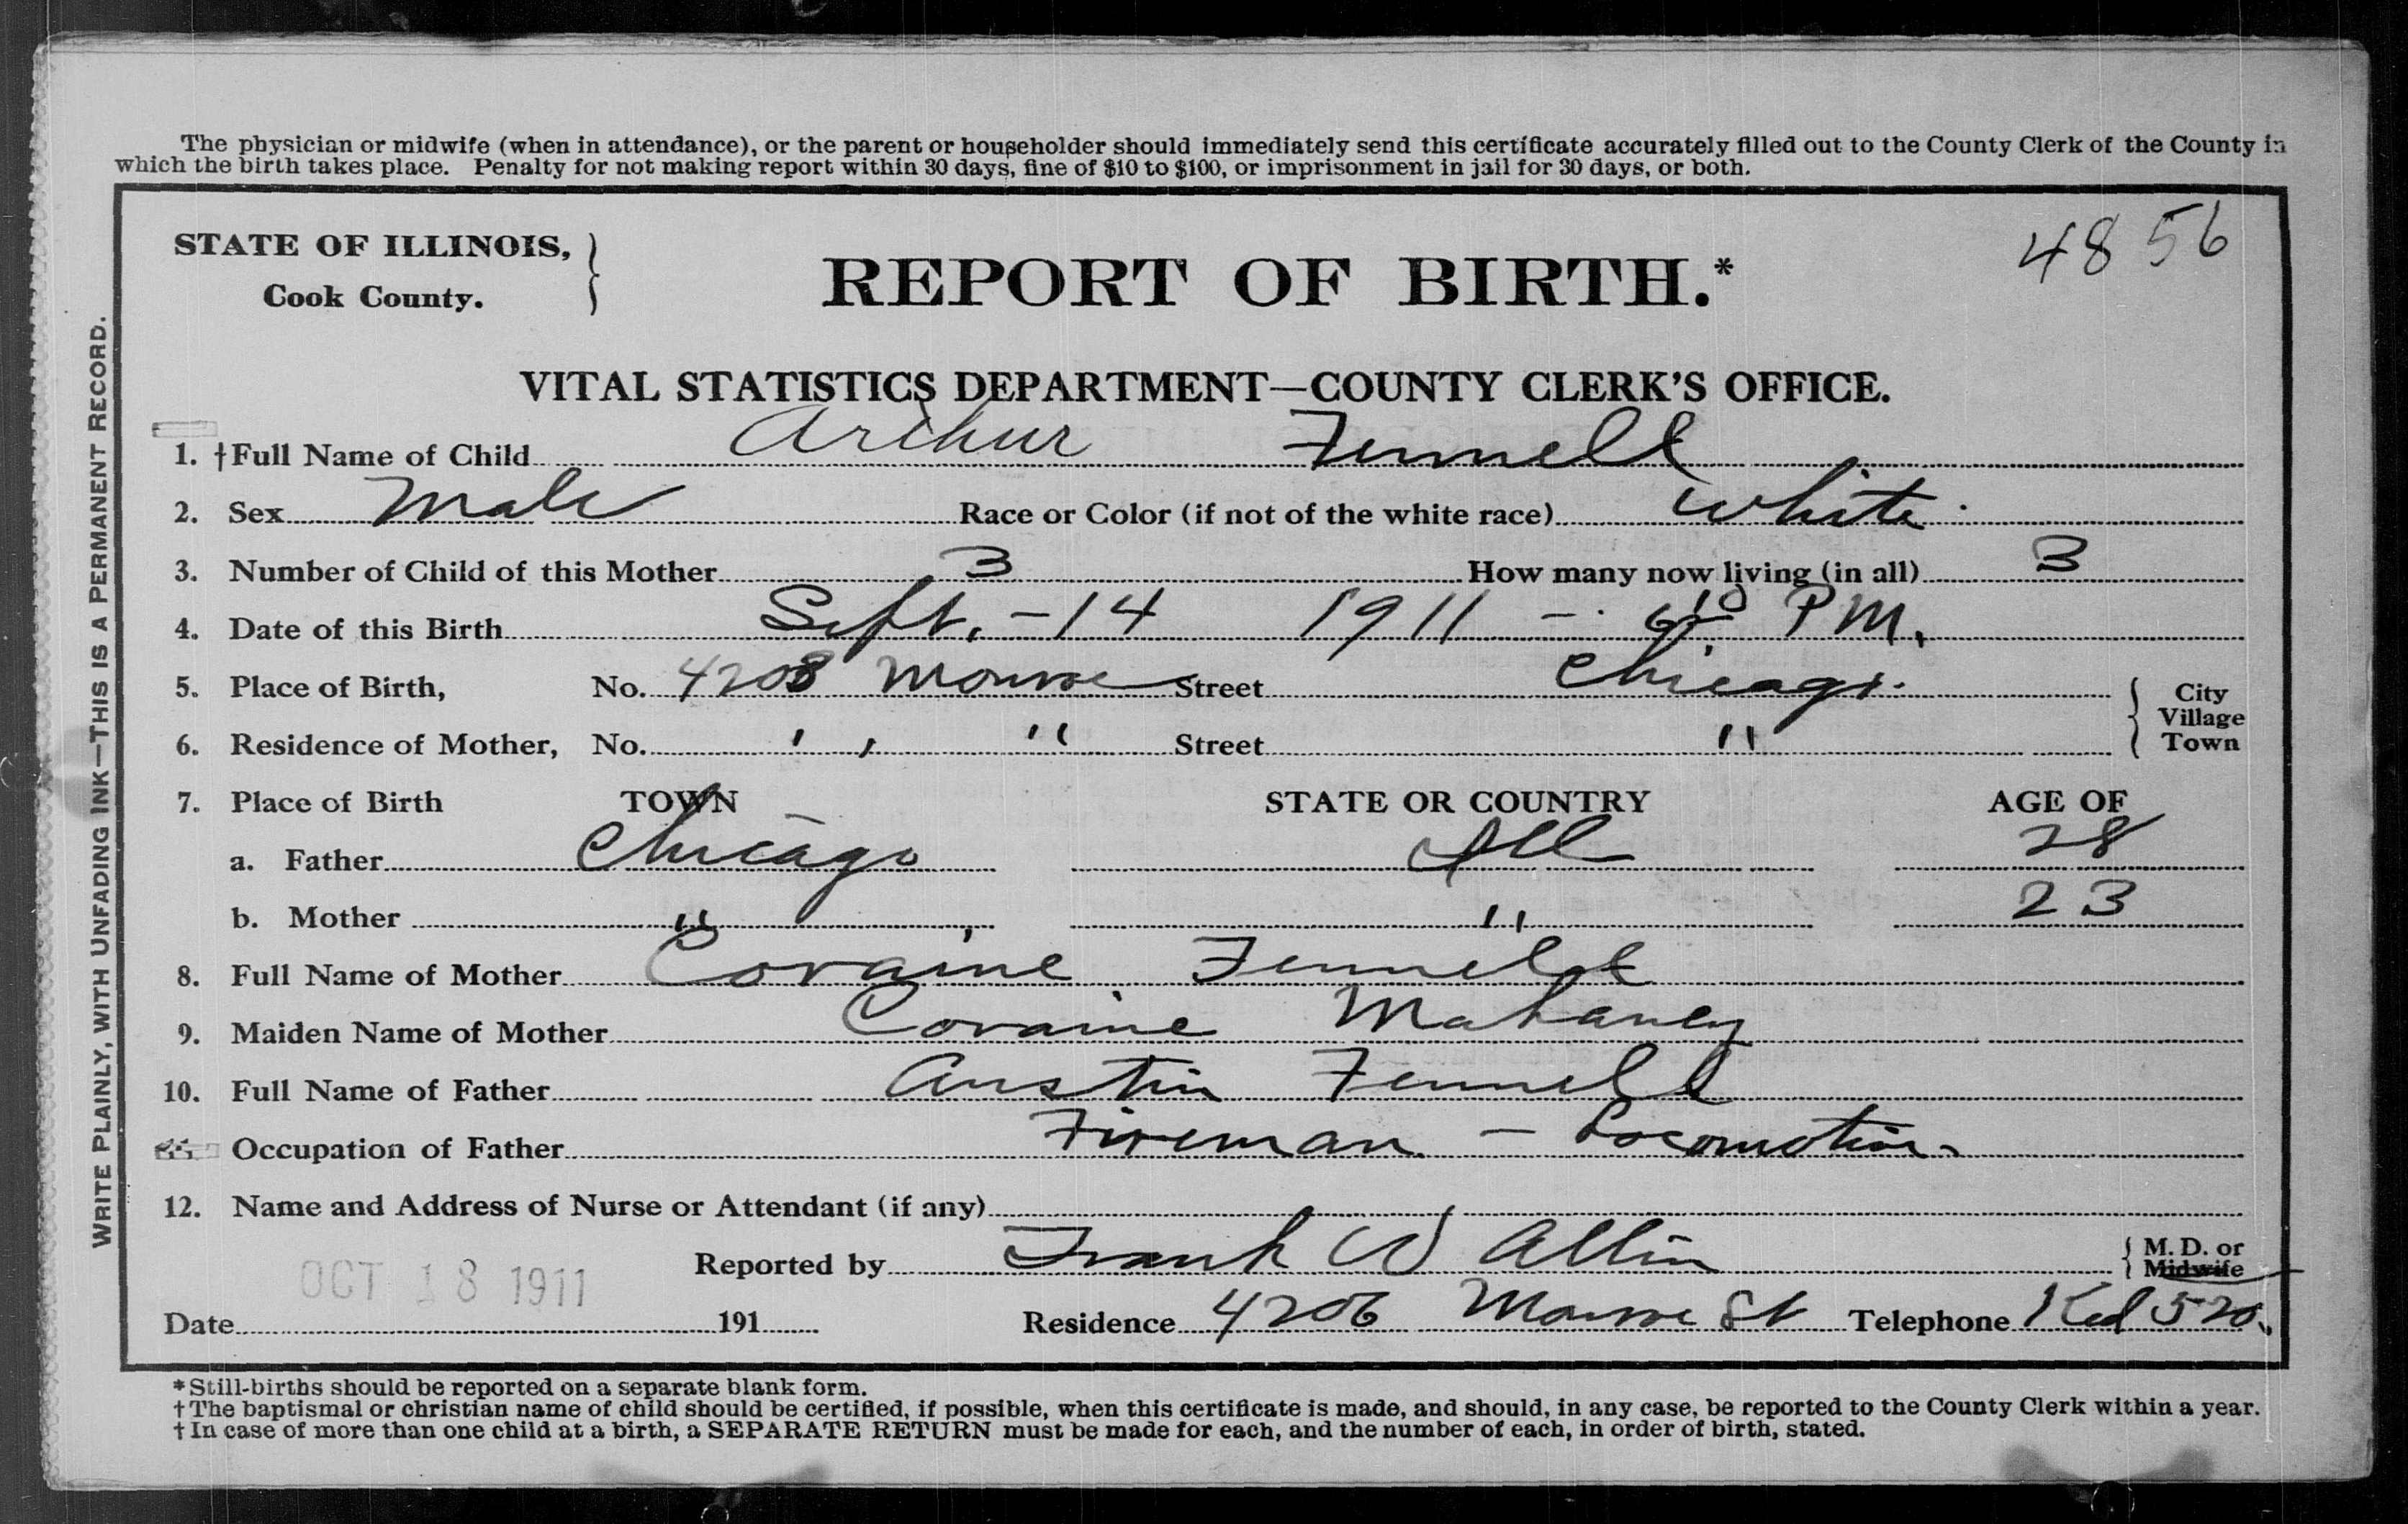 The physician or midwife (when in attendance), or the parent or householder should immediately send this certificate accurately filled out to the County Clerk of the County in
which the birth takes place. Penalty for not making report within 30 days, fine of $10 to $100, or imprisonment in jail for 30 days, or both.
WRITE PLAINLY, WITH UNFADING INK—THIS IS A PERMANENT RECORD.
STATE OF ILLINOIS,
Cook County.
REPORT OF BIRTH.*
4856
VITAL STATISTICS DEPARTMENT—COUNTY CLERK'S OFFICE.
1. †Full Name of Child Arthur Fennell
2. Sex Male Race or Color (if not of the white race) White.
3. Number of Child of this Mother 3 How many now living (in all) 3
4. Date of this Birth Sept. - 14 1911 - PM.
5. Place of Birth, No. 4208 Monroe Street Chicago. City Village Town
6. Residence of Mother, No. " " Street "
7. Place of Birth TOWN STATE OR COUNTRY AGE OF
a. Father Chicago Ill 28
b. Mother " " 23
8. Full Name of Mother Coraine Fennell
9. Maiden Name of Mother Coraine Mahaney
10. Full Name of Father Austin Fennell
Occupation of Father Fireman - Locomotive
12. Name and Address of Nurse or Attendant (if any)
Reported by Frank W Allin M. D. or Midwife
OCT 18 1911
Date 191 Residence 4206 Monroe St Telephone Ked 520.
*Still-births should be reported on a separate blank form.
†The baptismal or christian name of child should be certified, if possible, when this certificate is made, and should, in any case, be reported to the County Clerk within a year.
†In case of more than one child at a birth, a SEPARATE RETURN must be made for each, and the number of each, in order of birth, stated.